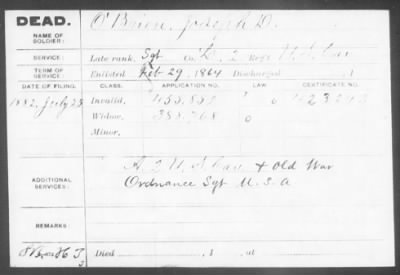 DEAD. O'Brien, Joseph D.
NAME OF SOLDIER:
SERVICE: Late rank, Sgt Co. L, 2 Reg't U.S. Cav
TERM OF SERVICE: Enlisted Feb 29, 1864 Discharged , 1
DATE OF FILING. CLASS. APPLICATION NO. LAW CERTIFICATE NO.
1882, July 28 Invalid,
Widow, 388.768
Minor,
ADDITIONAL SERVICES: A 2 U.S. Cav + Old War
Ordnance Sgt U.S.A
REMARKS:
Died , 1 , at